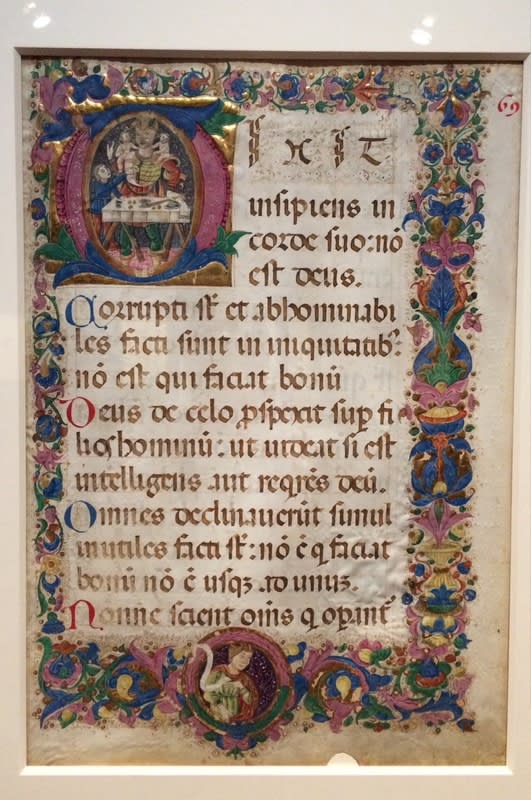 69
DIXIT
insipiens in
corde suo: no
est deus.
Corrupti st̄ et abhominabi
les facti sunt in iniquitatibꝰ:
nō est qui faciat bonū
Deus de celo ꝓspexit suꝑ fi
lios hominū: ut uideat si est
intelligens aut reqrēs deū.
Omnes declinauerūt simul
inutiles facti st̄: nō ē q faciat
bonū nō ē usqꝫ ad unuꝫ.
Nonne scient oīns q oꝑant̄